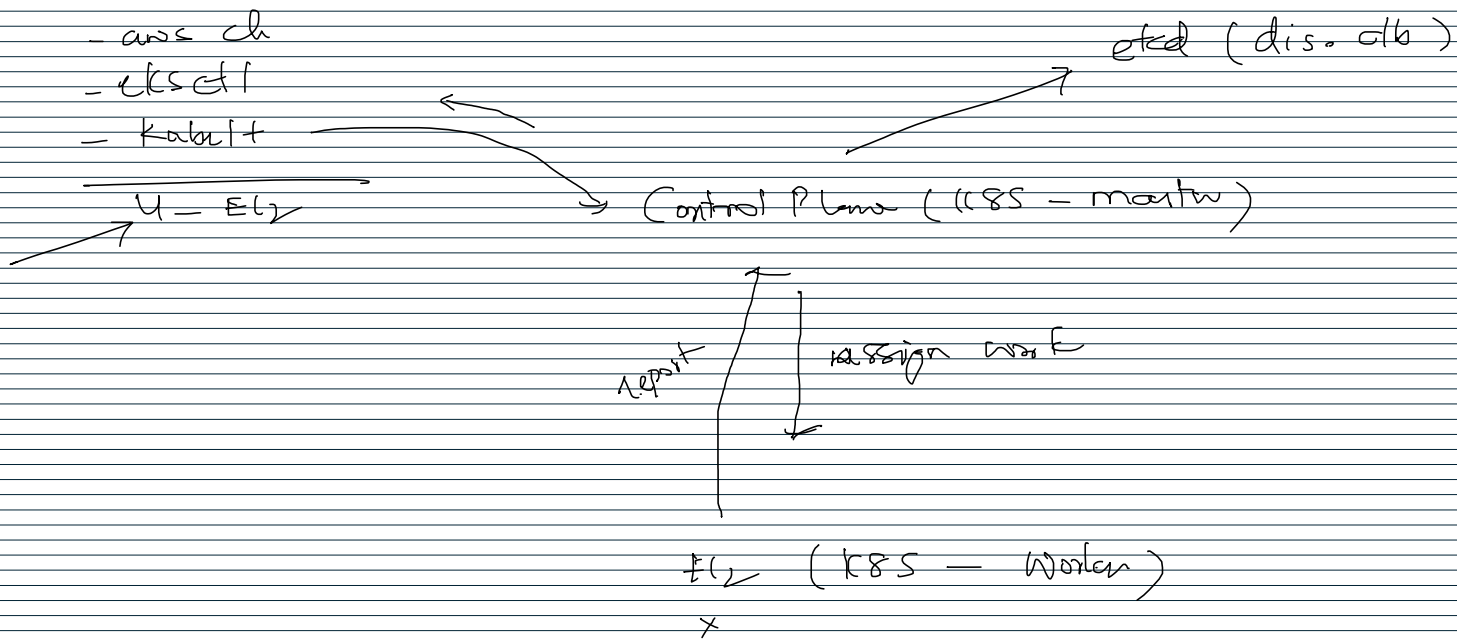 - aws cli
- eksctl
- Kubectl
U - EC2
etcd (dis. db)
Control Plane (K8S - master)
report
assign work
EC2 (K8S - Worker)
x